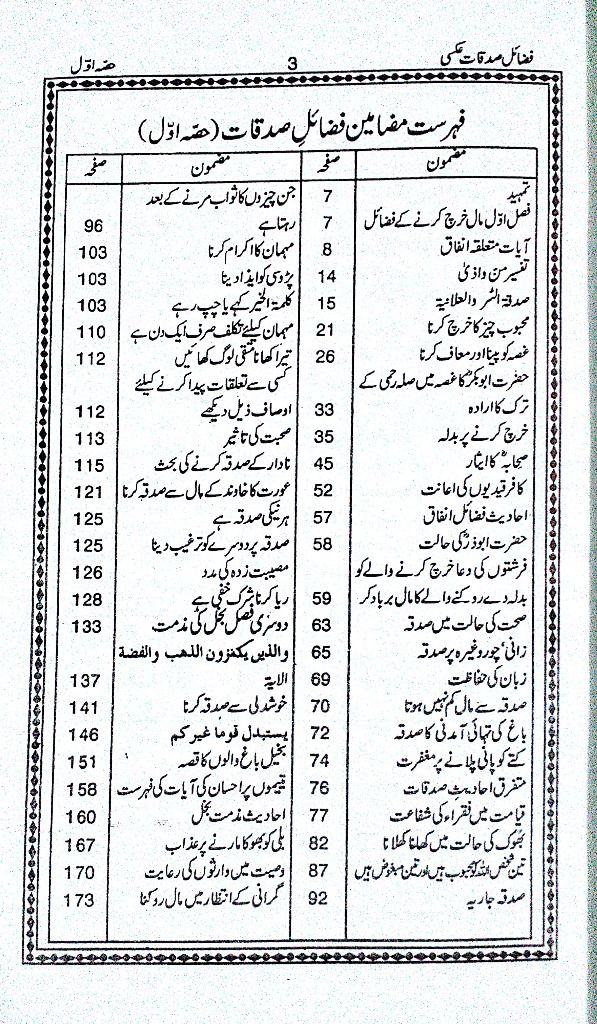 فضائل صدقات عکسی 3 حصہ اوّل
فہرست مضامین فضائلِ صدقات (حصّہ اوّل)
مضمون صفحہ
تمہید 7
فصل اوّل مال خرچ کرنے کے فضائل 7
آیات متعلقہ انفاق 8
تفسیر من و اذیٰ 14
صدقۃ السّر والعلانیۃ 15
محبوب چیز کا خرچ کرنا 21
غصہ کو پینا اور معاف کرنا 26
حضرت ابوبکرؓ کا غصہ میں صلہ رحمی کے
ترک کا ارادہ 33
خرچ کرنے پر بدلہ 35
صحابہؓ کا ایثار 45
کافر قیدیوں کی اعانت 52
احادیث فضائل انفاق 57
حضرت ابوذرؓ کی حالت 58
فرشتوں کی دعا خرچ کرنے والے کو
بدلہ دے روکنے والے کا مال برباد کر 59
صحت کی حالت میں صدقہ 63
زانی‘ چور وغیرہ پر صدقہ 65
زبان کی حفاظت 69
صدقہ سے مال کم نہیں ہوتا 70
باغ کی تہائی آمدنی کا صدقہ 72
کتے کو پانی پلانے پر مغفرت 74
متفرق احادیثِ صدقات 76
قیامت میں فقراء کی شفاعت 77
بھوک کی حالت میں کھانا کھلانا 82
تین شخص اللہ کو محبوب ہیں اور تین مبغوض ہیں 87
صدقہ جاریہ 92
مضمون صفحہ
جن چیزوں کا ثواب مرنے کے بعد
رہتا ہے 96
مہمان کا اکرام کرنا 103
پڑوسی کو ایذا دینا 103
کلمۃ الخیر کہے یا چپ رہے 103
مہمان کیلئے تکلف صرف ایک دن ہے 110
تیرا کھانا متقی لوگ کھائیں 112
کسی سے تعلقات پیدا کرنے کیلئے
اوصاف ذیل دیکھے 112
صحبت کی تاثیر 113
نادار کے صدقہ کرنے کی بحث 115
عورت کا خاوند کے مال سے صدقہ کرنا 121
ہر نیکی صدقہ ہے 125
صدقہ پر دوسرے کو ترغیب دینا 125
مصیبت زدہ کی مدد 126
ریا کرنا شرک خفی ہے 128
دوسری فصل بخل کی مذمت 133
والذین یکنزون الذهب والفضة
الایة 137
خوشدلی سے صدقہ کرنا 141
یستبدل قوما غیرکم 146
بخیل باغ والوں کا قصہ 151
یتیموں پر احسان کی آیات کی فہرست 158
احادیث مذمت بخل 160
بلی کو بھوکا مارنے پر عذاب 167
وصیت میں وارثوں کی رعایت 170
گرانی کے انتظار میں مال روکنا 173